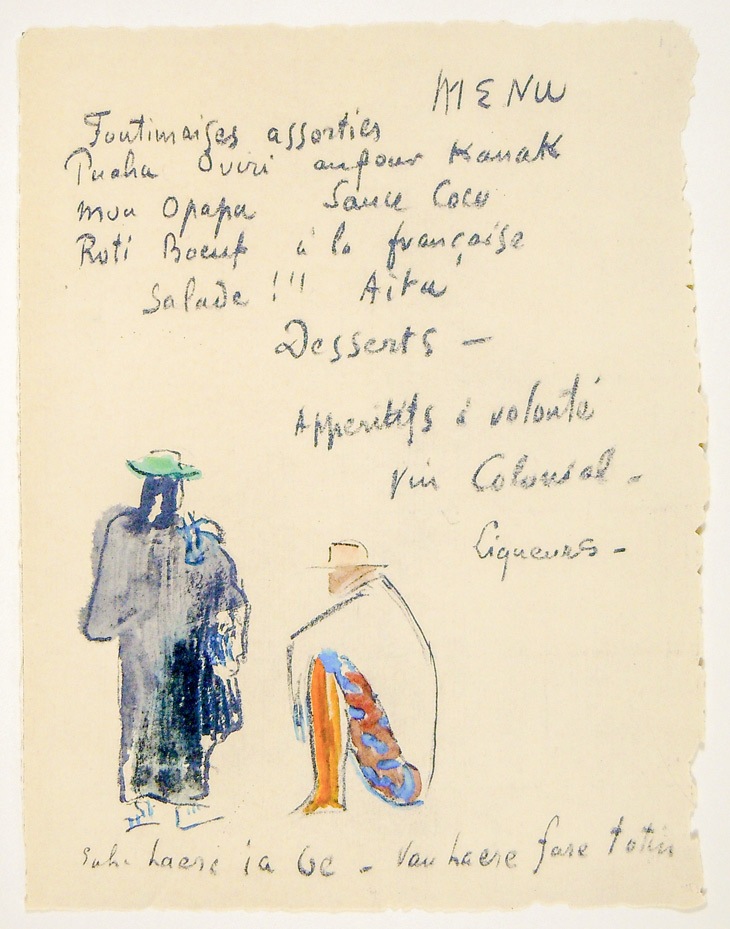 MENU
assorties
Puaha Oviri aufour Kanak
Moa Opapa Sauce Coco
Roti Boeuf à la française
Salade !!! Aita
Desserts —
Apperitifs à volonté
Vin Colonial -
Liqueurs -
haere ia oe - Vau haere fare